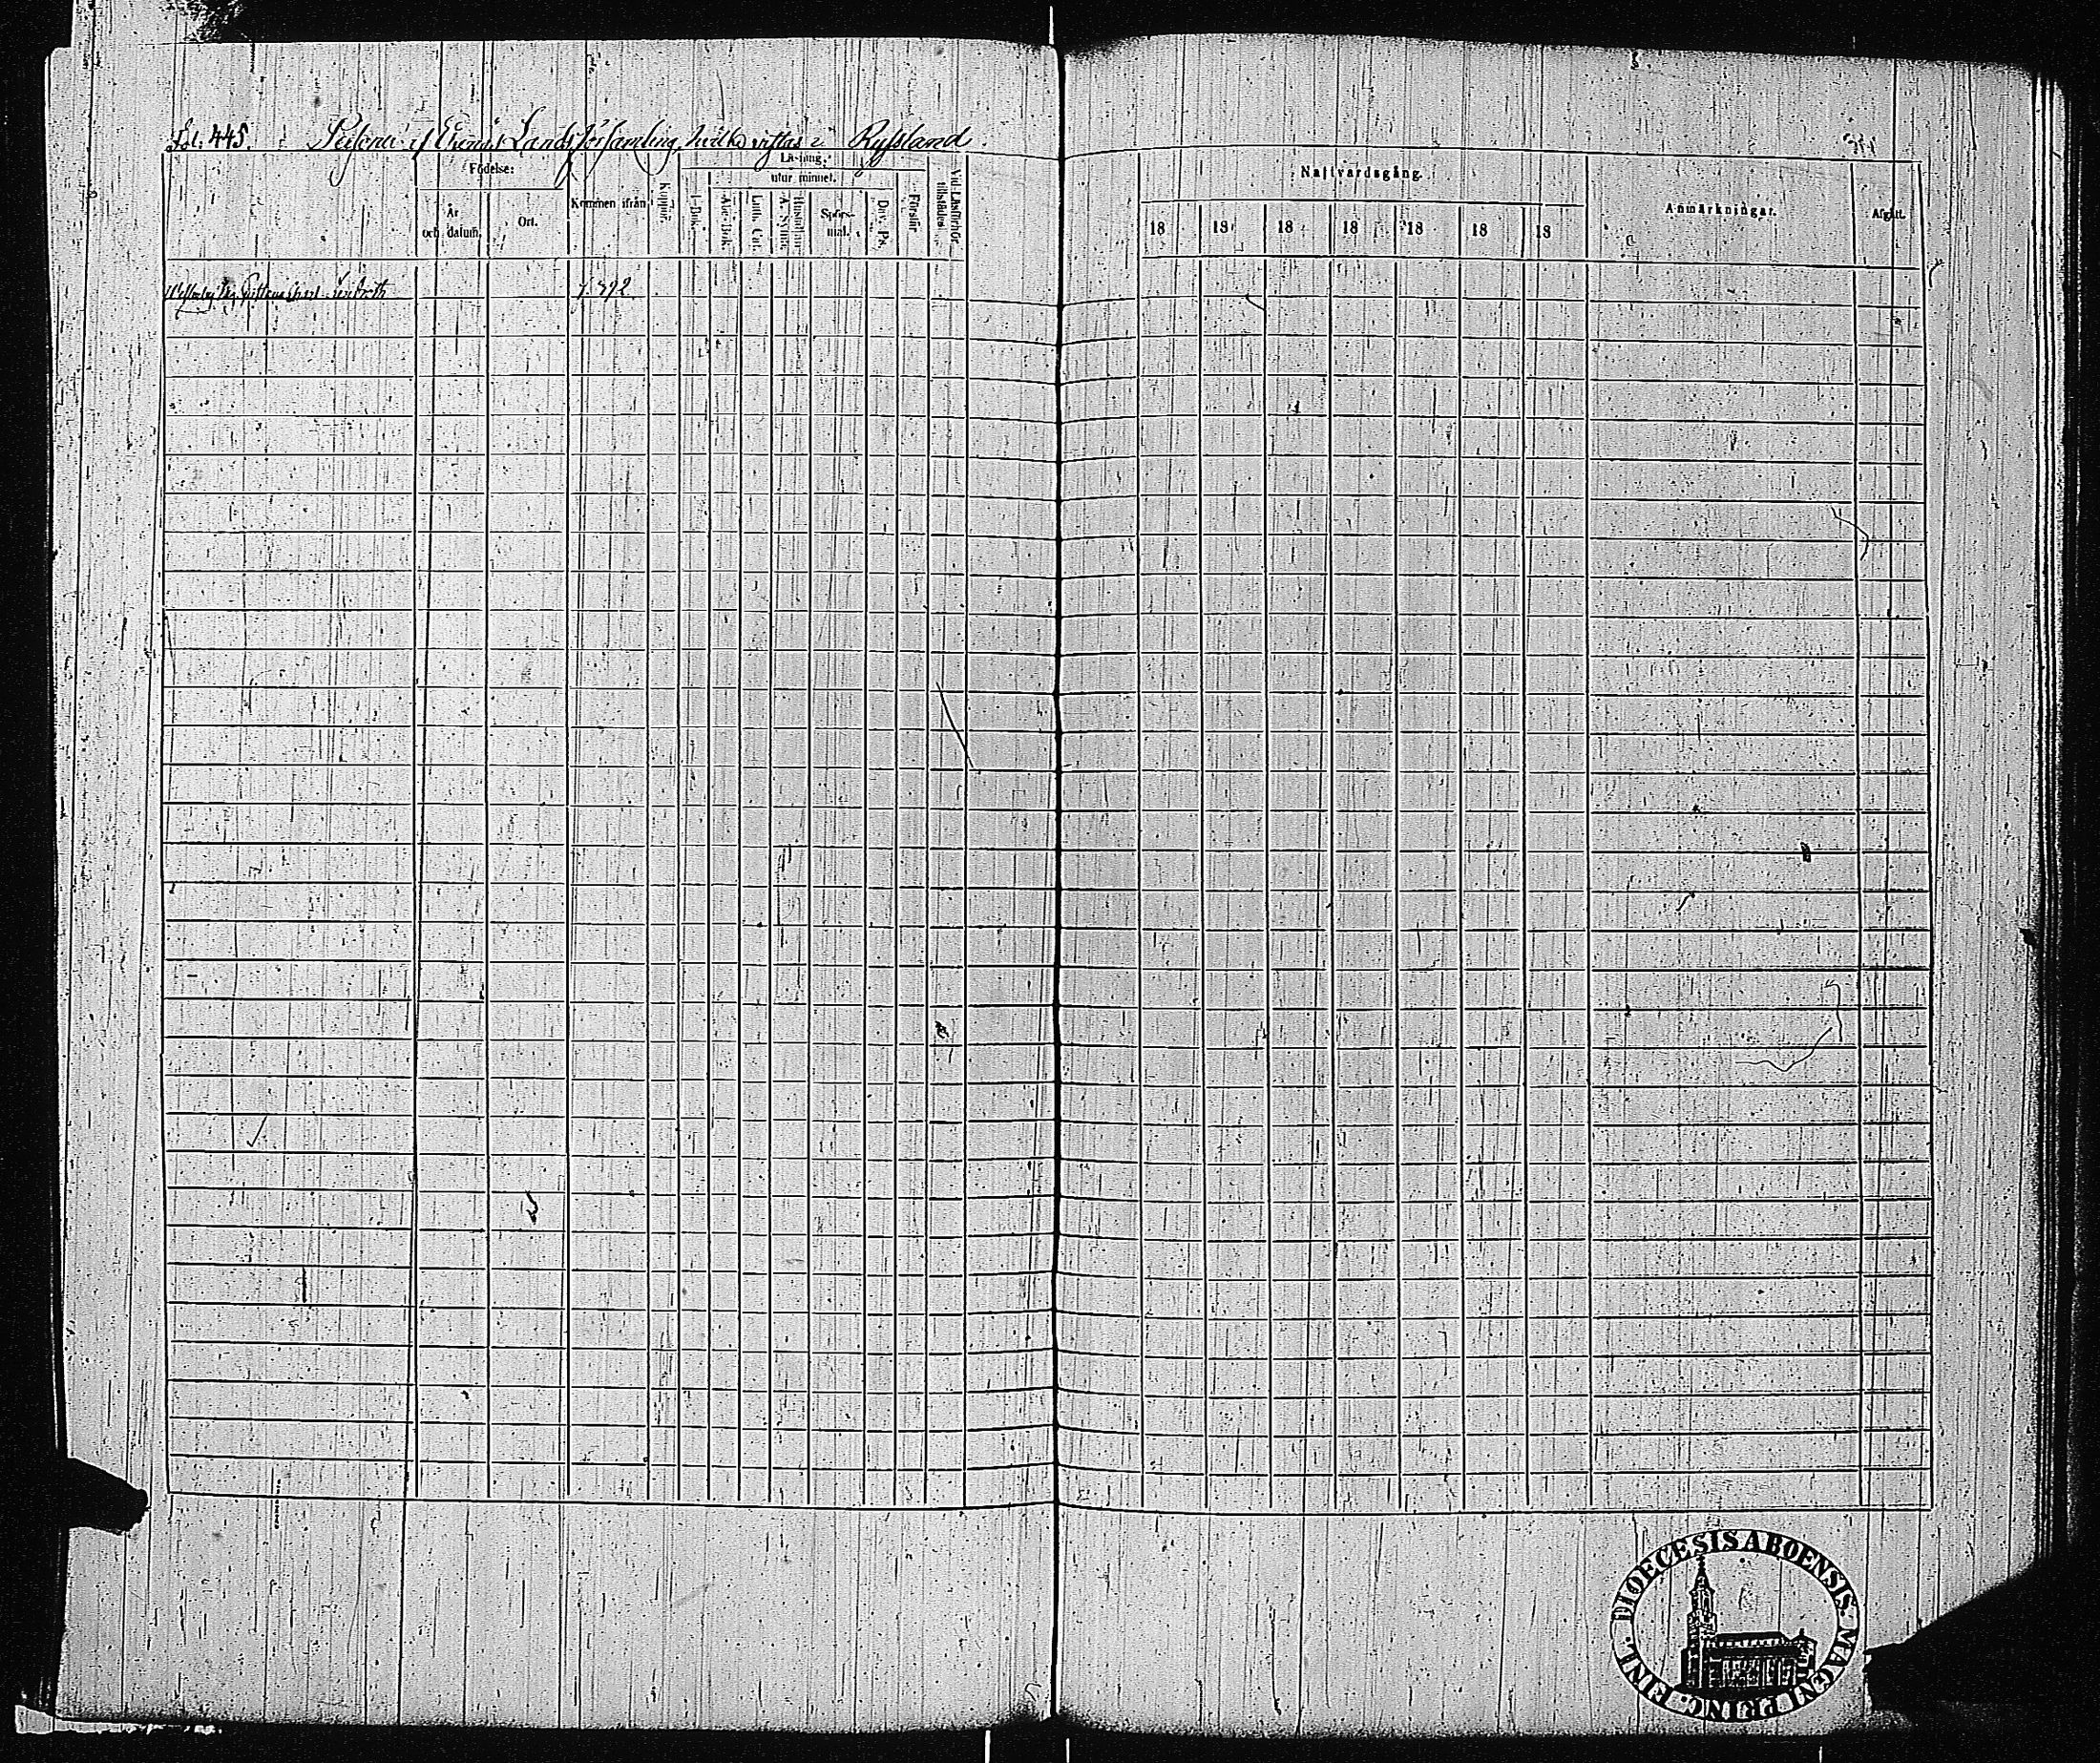 Fol. 445. Personer af Ekenäs Landsförsamling, hvilka vistas i Ryssland.
Födelse:
År och datum.
Ort.
Kommen ifrån
Koppor.
Läsning,
utur minnet.
I Bok.
Abc-Bok.
Luth. Cat.
Hustaflan A. Symb.
Spörs- mål.
Dav. Ps.
Förstår
Vid Läsförhör tillstädes
Westerby Gustava Charl.
p. 392
Nattvardsgång.
18 18 18 18 18 18 18
Anmärkningar.
Afgått.
DIOECESIS ABOENSIS. MAGNI PRINC. FINL.